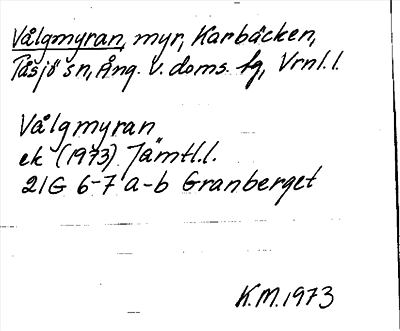 Vålgmyran, myr, Karbäcken,
Tåsjö sn, Ång. v. doms. fg, Vrnl. l.
Vålgmyran
ek (1973) Jämtl.l.
21G 6-7 a-b Granberget
K.M. 1973